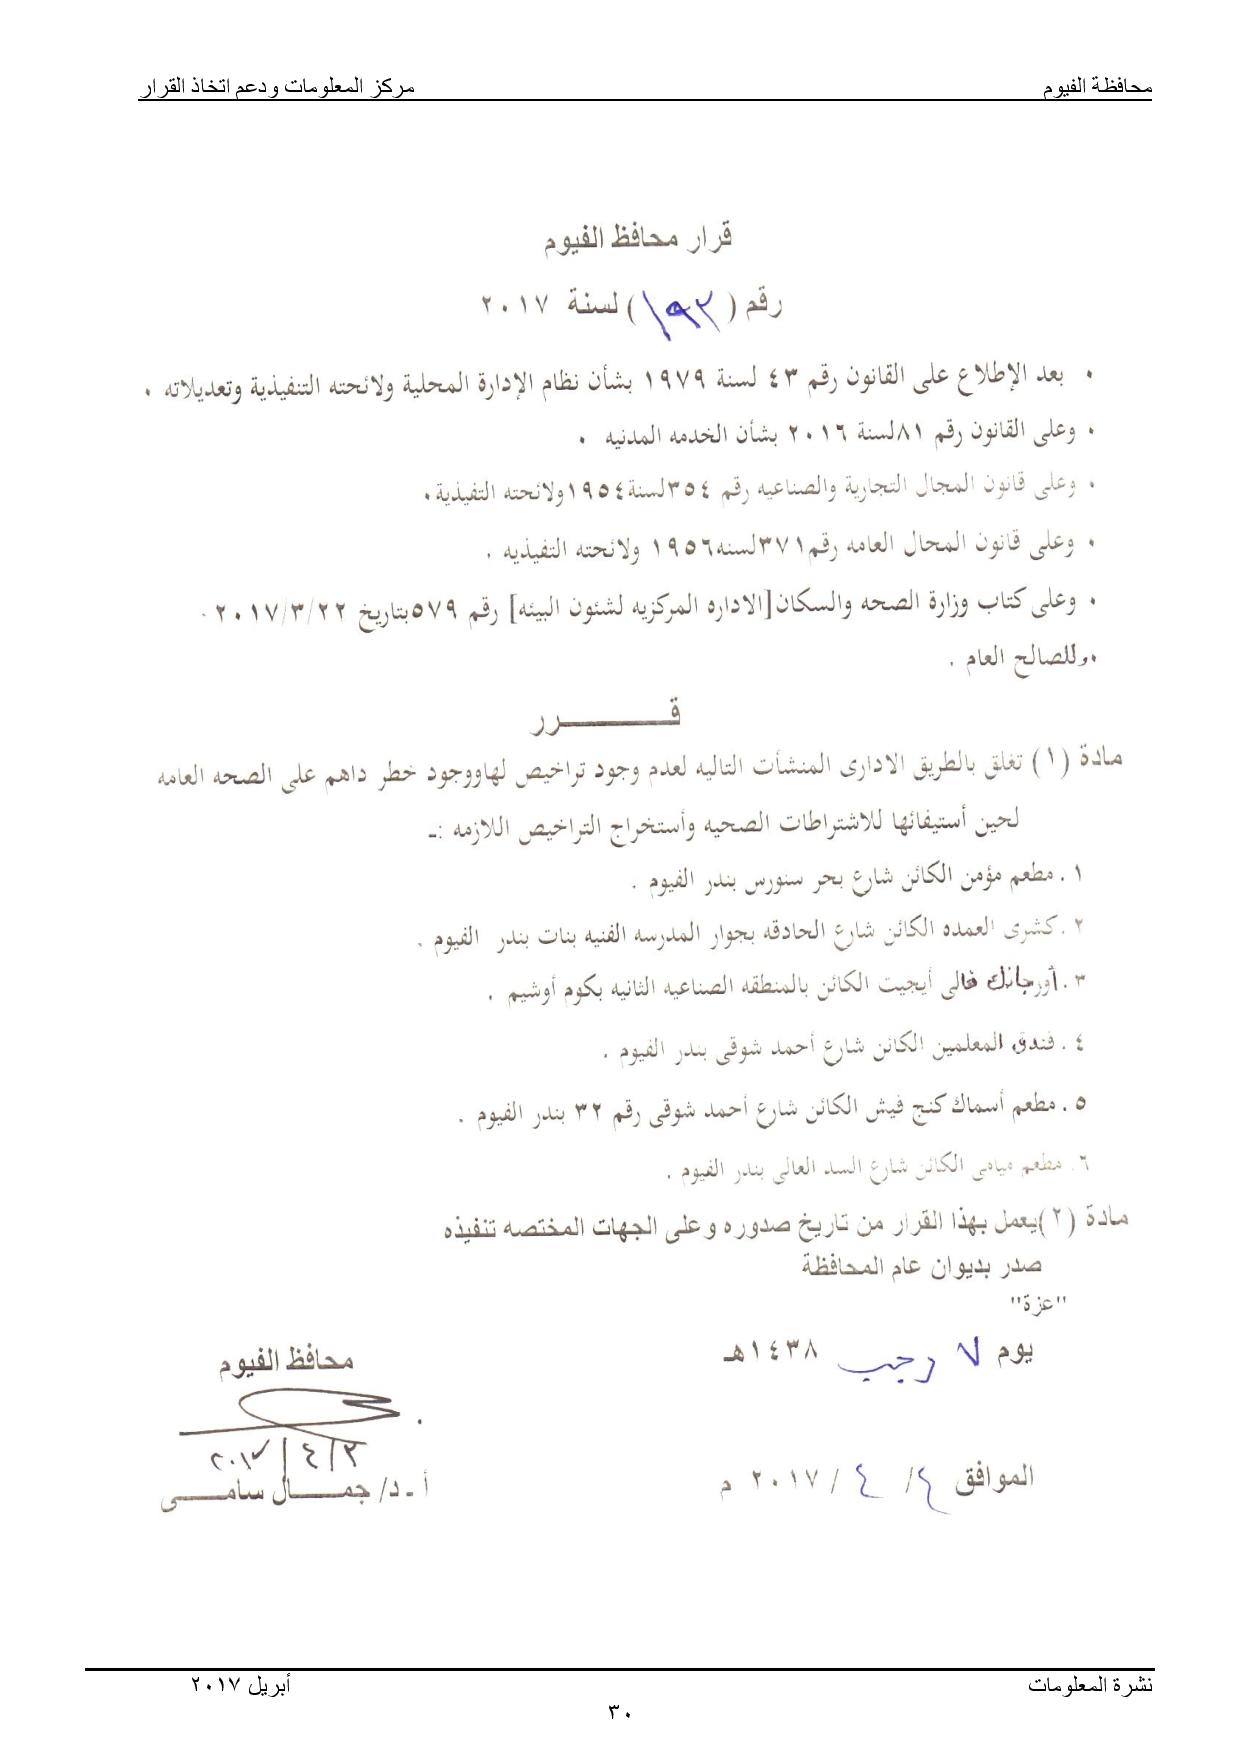 محافظة الفيوم
مركز المعلومات ودعم اتخاذ القرار
قرار محافظ الفيوم
رقم (١٩٢) لسنة ٢٠١٧
• بعد الإطلاع على القانون رقم ٤٣ لسنة ١٩٧٩ بشأن نظام الإدارة المحلية ولائحته التنفيذية وتعديلاته .
• وعلى القانون رقم ٨١لسنة ٢٠١٦ بشأن الخدمه المدنيه .
• وعلى قانون المجال التجارية والصناعيه رقم ٣٥٤لسنة١٩٥٤ولائحته التفيذية.
• وعلى قانون المحال العامه رقم٣٧١لسنه١٩٥٦ ولائحته التفيذيه .
• وعلى كتاب وزارة الصحه والسكان[الاداره المركزيه لشئون البيئه] رقم ٥٧٩بتاريخ ٢٠١٧/٣/٢٢ .
•وللصالح العام .
قـــــــــرر
مادة (١) تغلق بالطريق الادارى المنشأت التاليه لعدم وجود تراخيص لهاووجود خطر داهم على الصحه العامه
لحين أستيفائها للاشتراطات الصحيه وأستخراج التراخيص اللازمه :ـ
١. مطعم مؤمن الكائن شارع بحر سنورس بندر الفيوم .
٢. كشرى العمده الكائن شارع الحادقه بجوار المدرسه الفنيه بنات بندر الفيوم .
٣. أورجانك فالى أيجيت الكائن بالمنطقه الصناعيه الثانيه بكوم أوشيم .
٤. فندق المعلمين الكائن شارع أحمد شوقى بندر الفيوم .
٥. مطعم أسماك كنج فيش الكائن شارع أحمد شوقى رقم ٣٢ بندر الفيوم .
٦. مطعم ميامى الكائن شارع السد العالى بندر الفيوم .
مادة (٢)يعمل بهذا القرار من تاريخ صدوره وعلى الجهات المختصه تنفيذه
صدر بديوان عام المحافظة
"عزة"
يوم ٧ رجب ١٤٣٨هـ
محافظ الفيوم
٢٠١٧/٤/٢
الموافق ٤/ ٤ / ٢٠١٧ م
أ ـ د/ جمـــال سامـــى
نشرة المعلومات
أبريل ٢٠١٧
٣٠